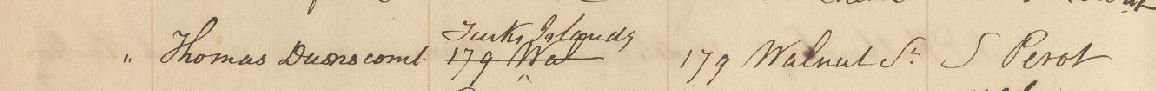 Turks Islands
" Thomas Dunscomb 179 Wal 179 Walnut St. S Perot
"